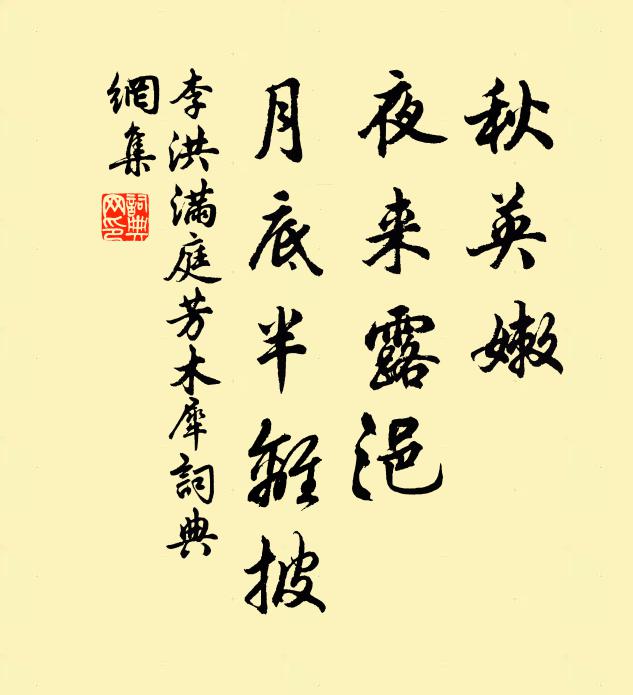 秋英嫩
夜来露浥
月底半離披
李洪滿庭芳木犀詞典
網集
詞典
网印